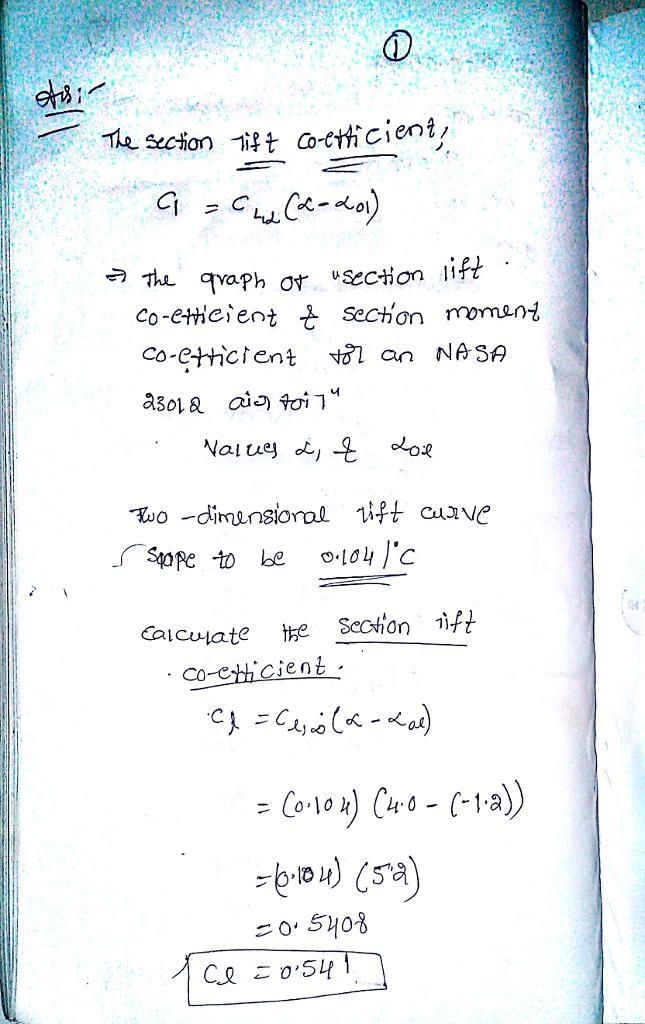 ①
Ans:-
The section lift co-efficient,
Cl = Clα (α-α0l)
⇒ The graph of "section lift
co-efficient & section moment
co-efficient for an NASA
23012 air foil"
Values α, & α0l
Two -dimensional lift curve
slope to be 0.104 /°C
calculate the section lift
co-efficient.
Cl = Cl,α (α - α0l)
= (0.104) (4.0 - (-1.2))
= (0.104) (5.2)
= 0.5408
Cl = 0.541